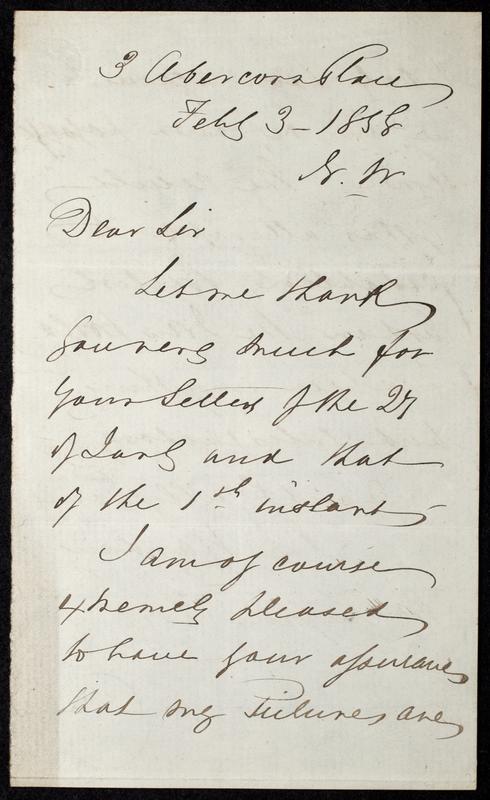 3 Abercorn Place
Feby 3 - 1858
N. W
Dear Sir
Let me thank
you very much for
your Letters of the 27
of Jany and that
of the 1st instant -
I am of course
extremely pleased
to have your assurance
that my Pictures are